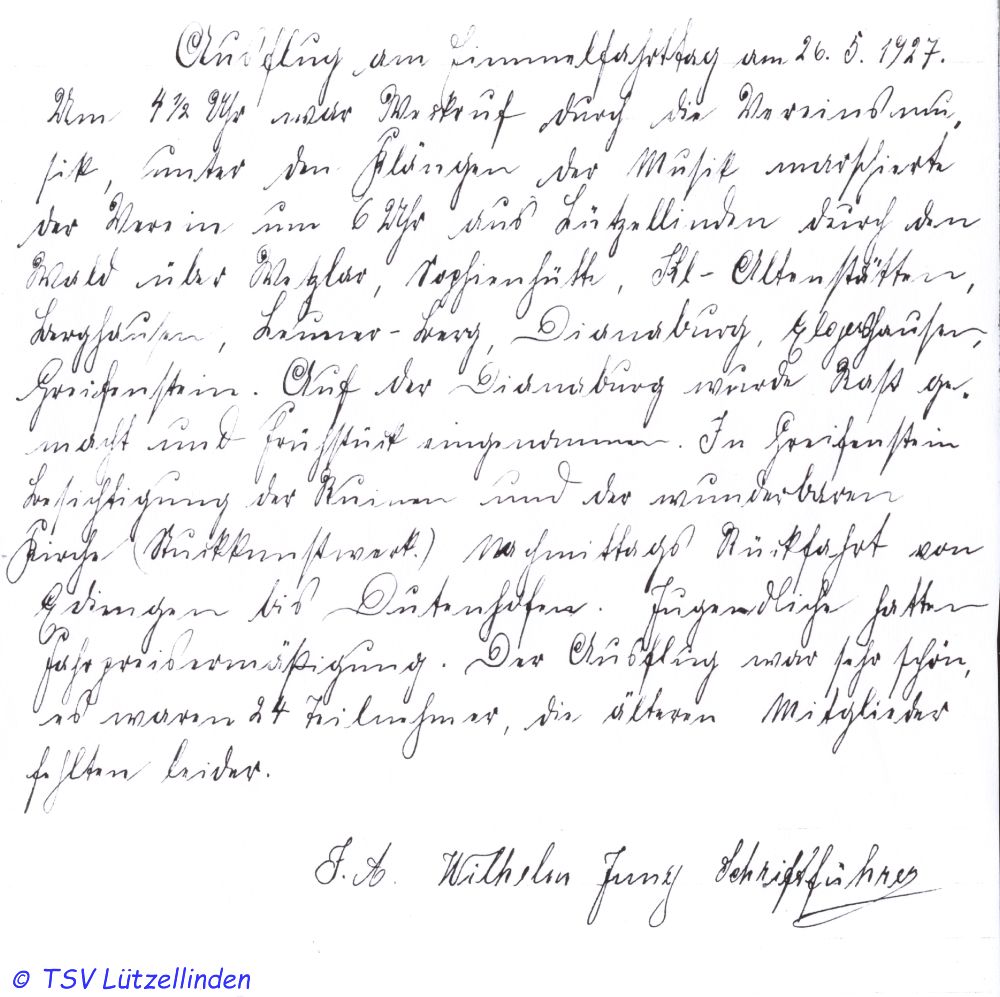 Ausflug am Himmelfahrttag am 26. 5. 1927.
Um 4 1/2 Uhr war Weckruf durch die Vereinsmu-
sik, unter den Klängen der Musik marschierte
der Verein um 6 Uhr aus Lützellinden durch den
Wald über Wetzlar, Sophienhütte, Kl-Altenstätten,
Berghausen, Leuner-Berg, Dianaburg,
Greifenstein. Auf der Dianaburg wurde Rast ge-
macht und Frühstück eingenommen. In Greifenstein
Besichtigung der Ruinen und der wunderbaren
Kirche (Stuckkunstwerk.) Nachmittags Rückfahrt von
Edingen bis Dutenhofen. Jugendliche hatten
Fahrpreisermäßigung. Der Ausflug war sehr schön,
es waren 24 Teilnehmer, die älteren Mitglieder
fehlten leider.
I. A. Wilhelm Jung Schriftführer
© TSV Lützellinden